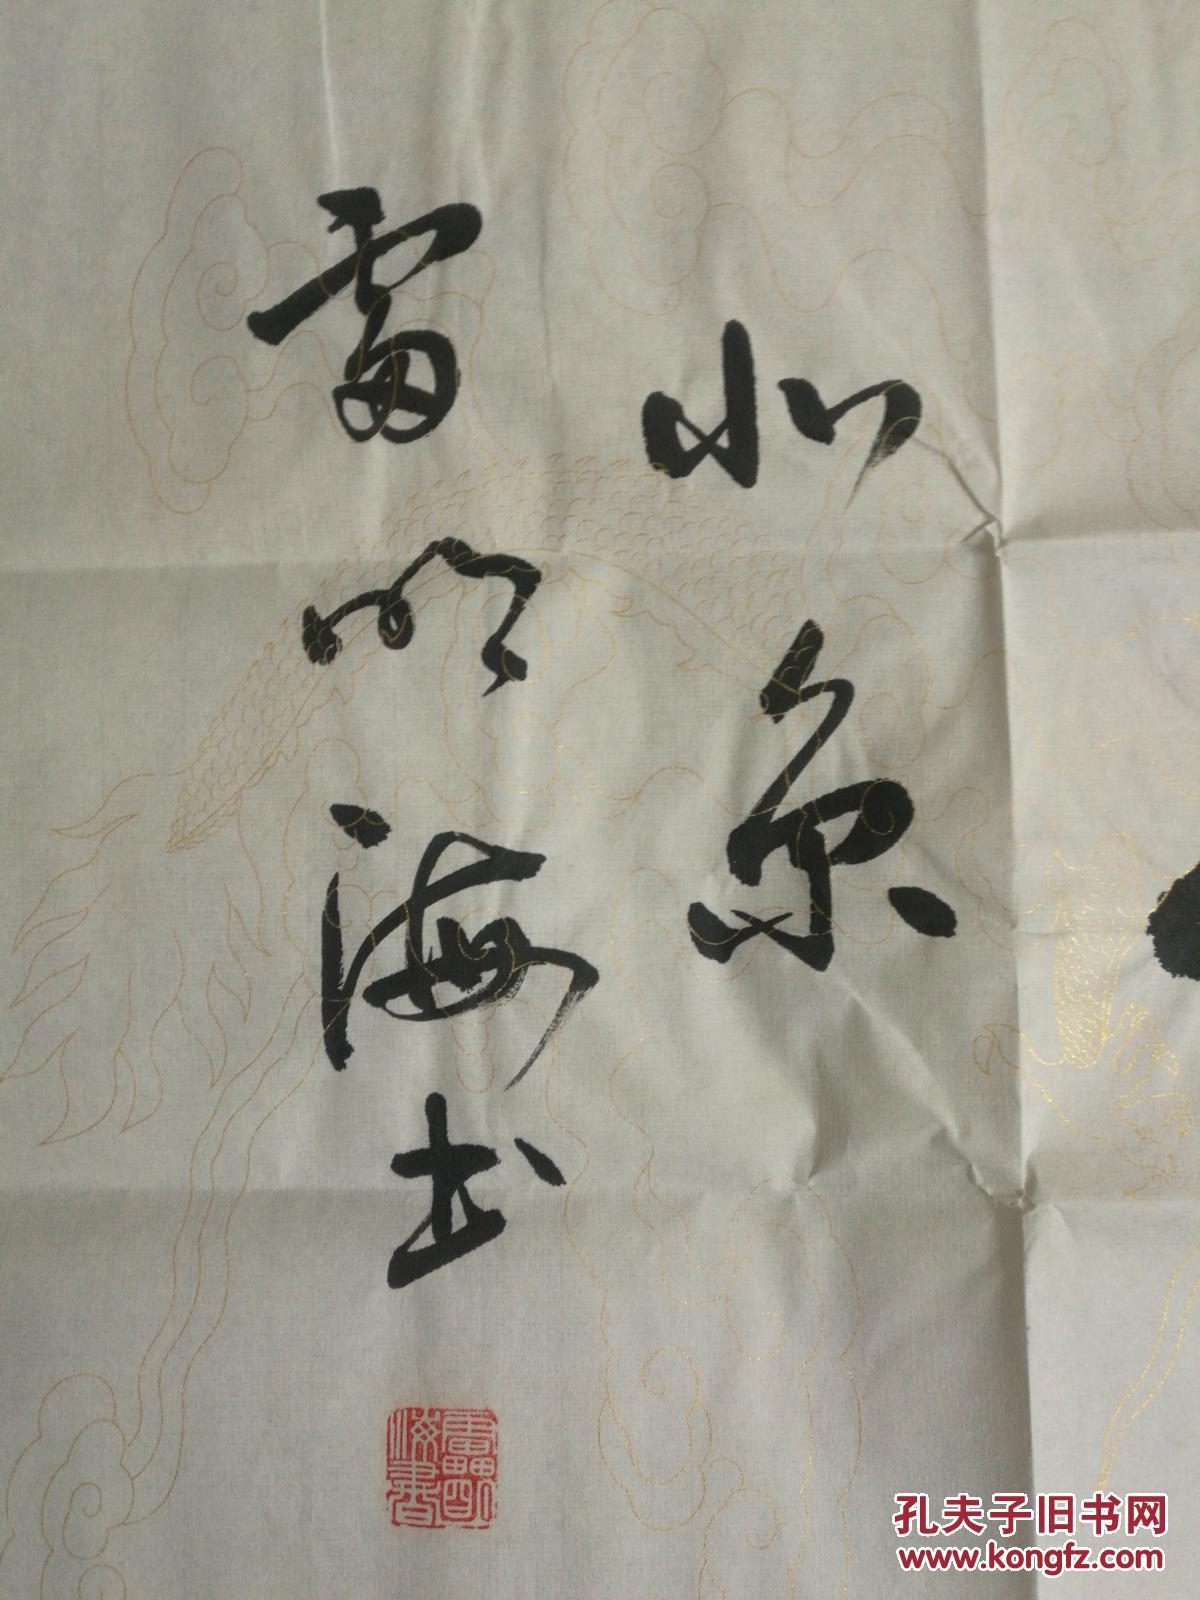 北京
雷明海书
雷明海书
孔夫子旧书网
www.kongfz.com